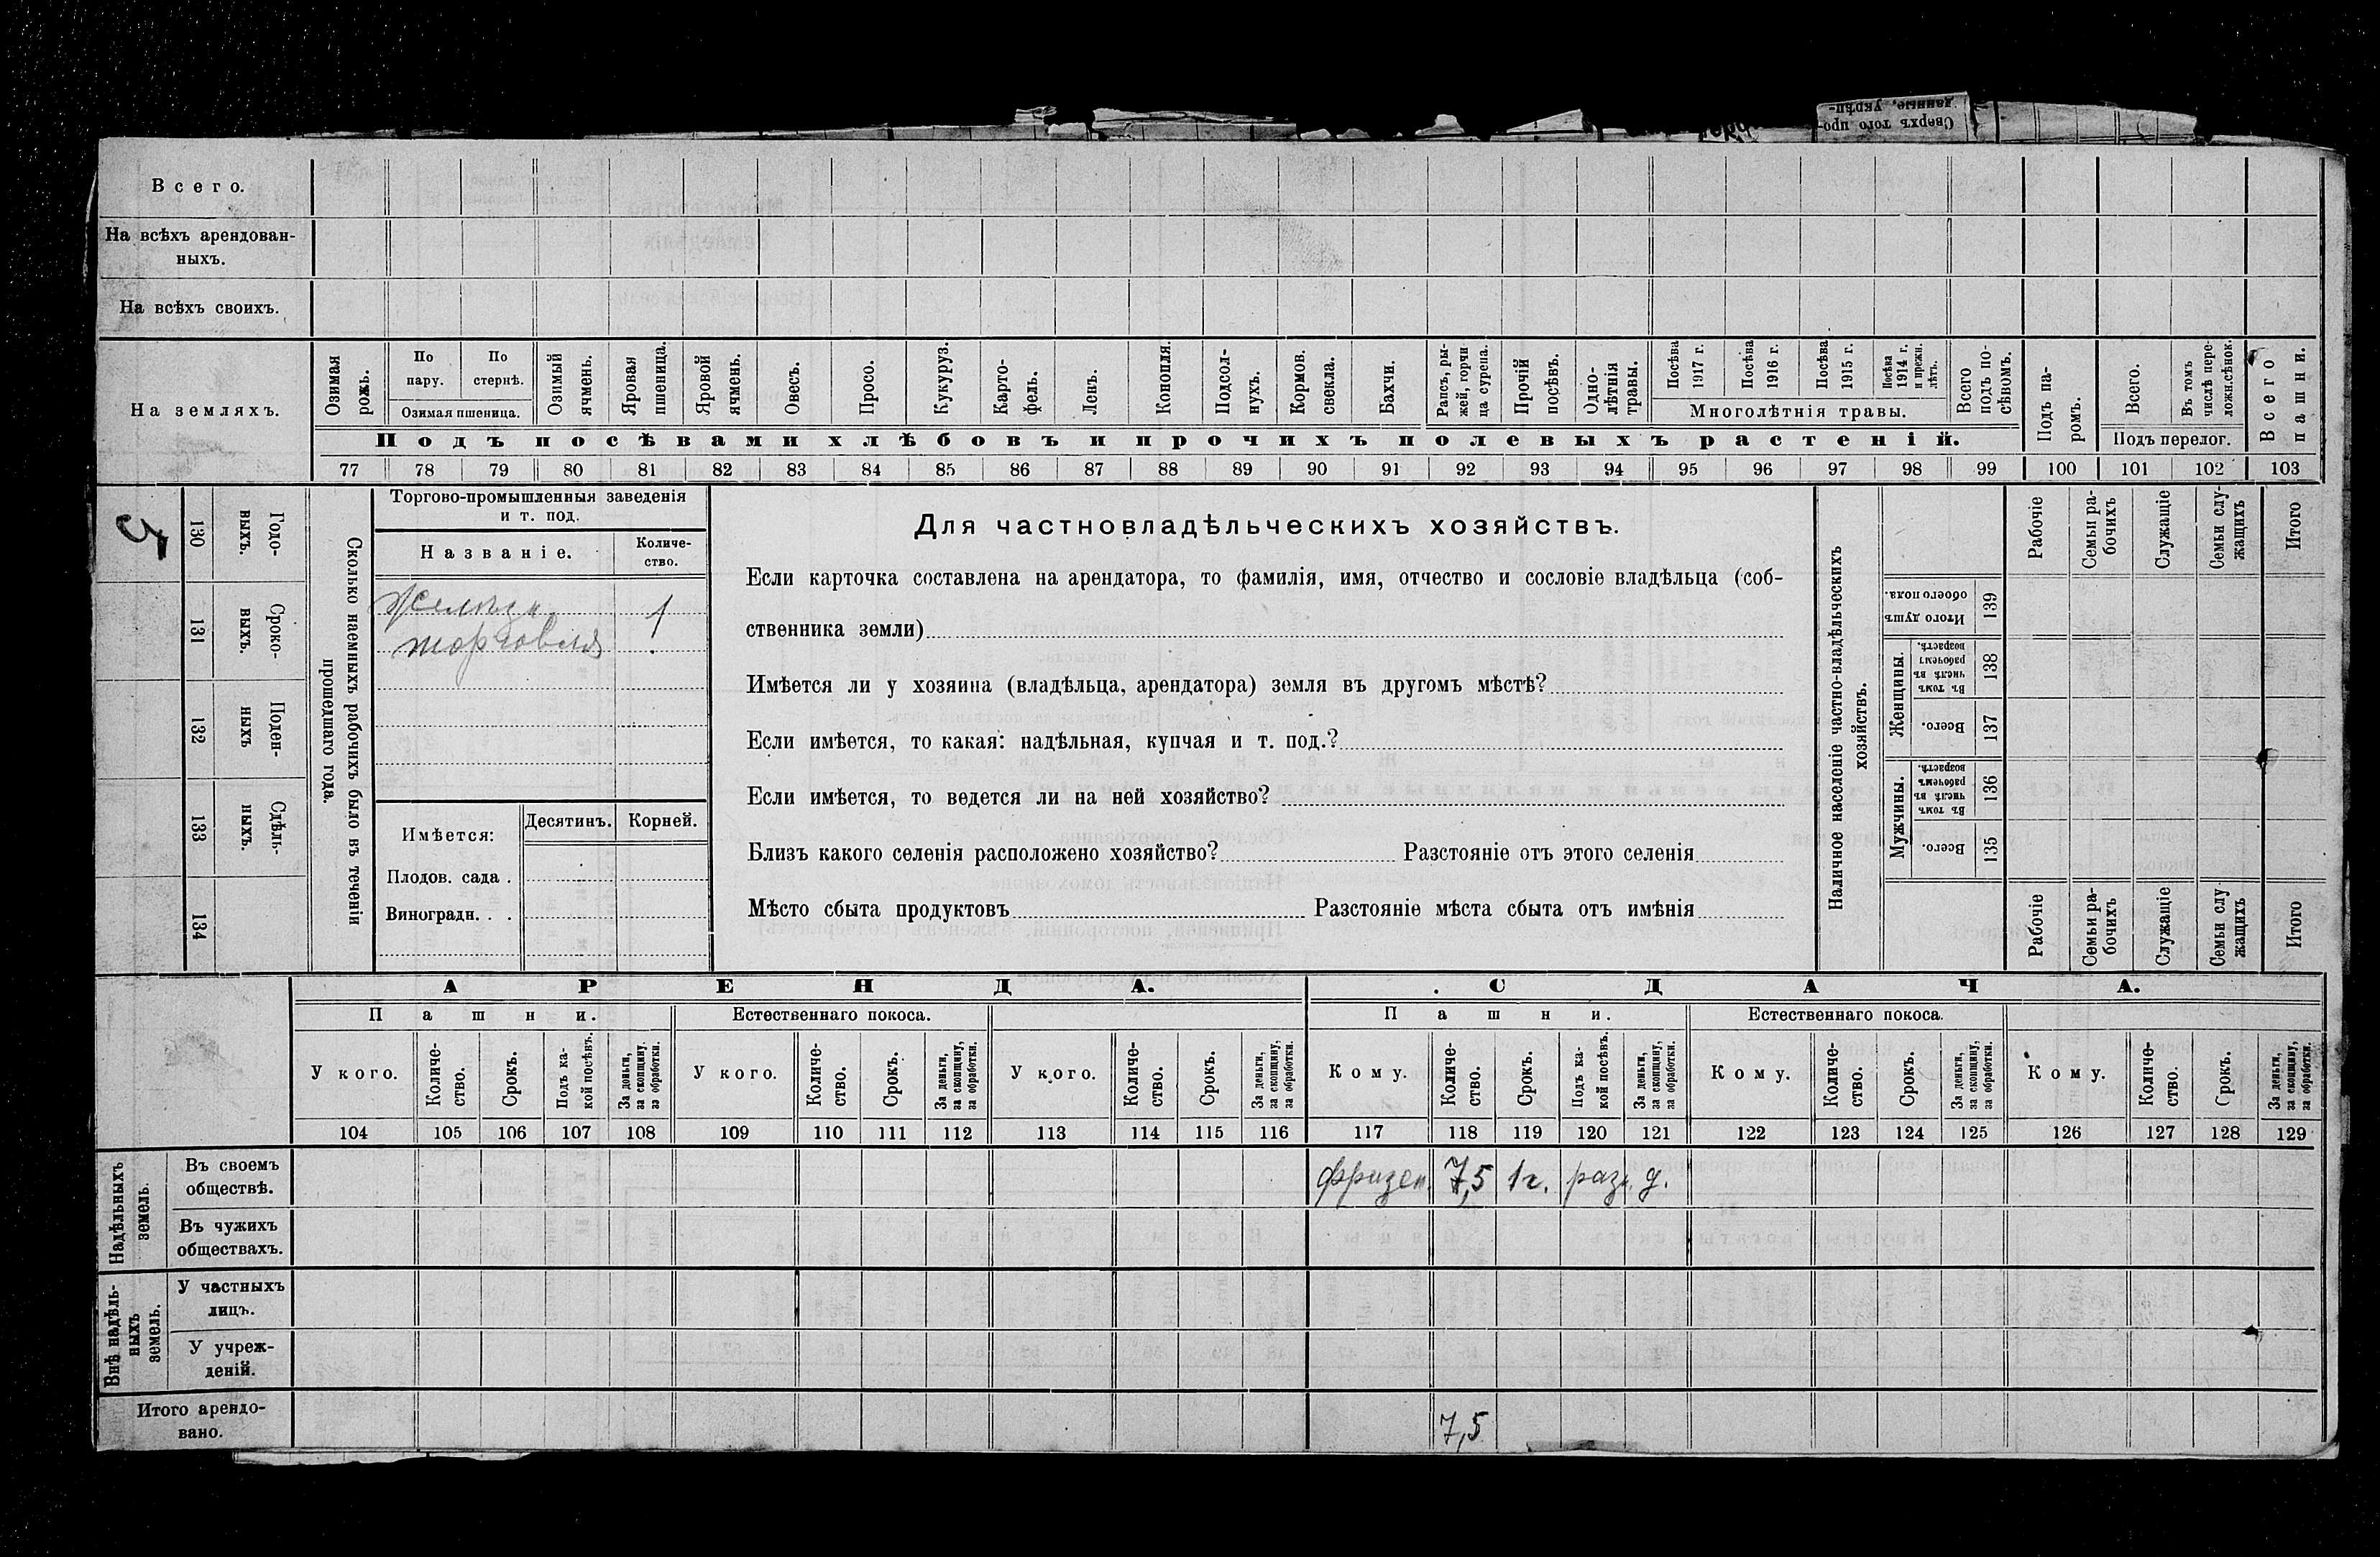 Сверхъ того про-
данные, укрѣп-
Всего.
На всѣхъ арендован-
ныхъ.
На всѣхъ своихъ.
На земляхъ.
Озимая рожь.
По пару.
По стернѣ.
Озимая пшеница.
Озимый ячмень.
Яровая пшеница.
Яровой ячмень.
Овесъ.
Просо.
Кукуруз.
Карто-
фель.
Ленъ.
Конопля.
Подсол-
нухъ.
Кормов. свекла.
Бахчи.
Рапсъ, ры-
жей, горчи
ца сурепа.
Прочій посѣвъ.
Одно-
лѣтнія
травы.
Посѣва 1917 г.
Посѣва 1916 г.
Посѣва 1915 г.
Посѣва 1914 г. и прежн. лѣтъ.
Многолѣтнія травы.
Всего подъ по-
сѣвомъ.
Подъ посѣвами хлѣбовъ и прочихъ полевыхъ растеній.
Подъ па-
ромъ.
Всего.
Въ томъ числѣ пере-
ложн.сѣнок.
Подъ перелог.
Всего пашни.
77 78 79 80 81 82 83 84 85 86 87 88 89 90 91 92 93 94 95 96 97 98 99 100 101 102 103
5
130 Годо-
ныхъ.
131 Сроко-
выхъ.
132 Поден-
ныхъ
133 Сдѣль-
ныхъ.
134
Сколько наемныхъ рабочихъ было въ теченіи
прошедшаго года.
Торгово-промышленныя заведенія
и т. под.
Названіе.
Количе-
ство.
торговля 1
Имѣется:
Десятинъ. Корней.
Плодов. сада .
Виноградн. . .
Для частновладѣльческихъ хозяйствъ.
Если карточка составлена на арендатора, то фамилія, имя, отчество и сословіе владѣльца (соб-
ственника земли)
Имѣется ли у хозяина (владѣльца, арендатора) земля въ другомъ мѣстѣ?
Если имѣется, то какая: надѣльная, купчая и т. под.?
Если имѣется, то ведется ли на ней хозяйство?
Близъ какого селенія расположено хозяйство? Разстояніе отъ этого селенія
Мѣсто сбыта продуктовъ Разстояніе мѣста сбыта отъ имѣнія
Наличное населеніе частно-владѣльческихъ
хозяйствъ.
Итого душъ обоего пола. 139
Женщины.
Въ томъ числѣ въ рабочемъ возрастѣ. 138
Всего. 137
Мужчины.
Въ томъ числѣ въ рабочемъ возрастѣ. 136
Всего. 135
Рабочіе
Семьи ра-
бочихъ
Служащіе
Семьи слу-
жащихъ
Итого
Рабочіе
Семьи ра-
бочихъ
Служащіе
Семьи слу
жащихъ
Итого
АРЕНДА.
СДАЧА.
Пашни.
Естественнаго покоса.
Пашни.
Естественнаго покоса.
У кого.
Количе-
ство.
Срокъ.
Подъ ка-
кой посѣвъ.
За деньги,
за скопщину,
за обработки.
У кого.
Количе-
ство.
Срокъ.
За деньги,
за скопщину,
за обработки.
У кого.
Количе-
ство.
Срокъ.
За деньги,
за скопщину,
за обработки.
Кому.
Количе-
ство.
Срокъ.
Подъ ка-
кой посѣвъ.
За деньги,
за скопщину,
за обработки.
Кому.
Количе-
ство.
Срокъ.
За деньги,
за скопщину,
за обработки.
Кому.
Количе-
ство.
Срокъ.
За деньги,
за скопщину,
за обработки.
104 105 106 107 108 109 110 111 112 113 114 115 116 117 118 119 120 121 122 123 124 125 126 127 128 129
Надѣльныхъ
земель.
Въ своемъ
обществѣ.
7,5 1 г. разн. д.
Въ чужихъ
обществахъ.
Внѣ надѣль-
ныхъ
земель.
У частныхъ
лицъ.
У учреж-
деній.
Итого арендо-
вано.
7,5